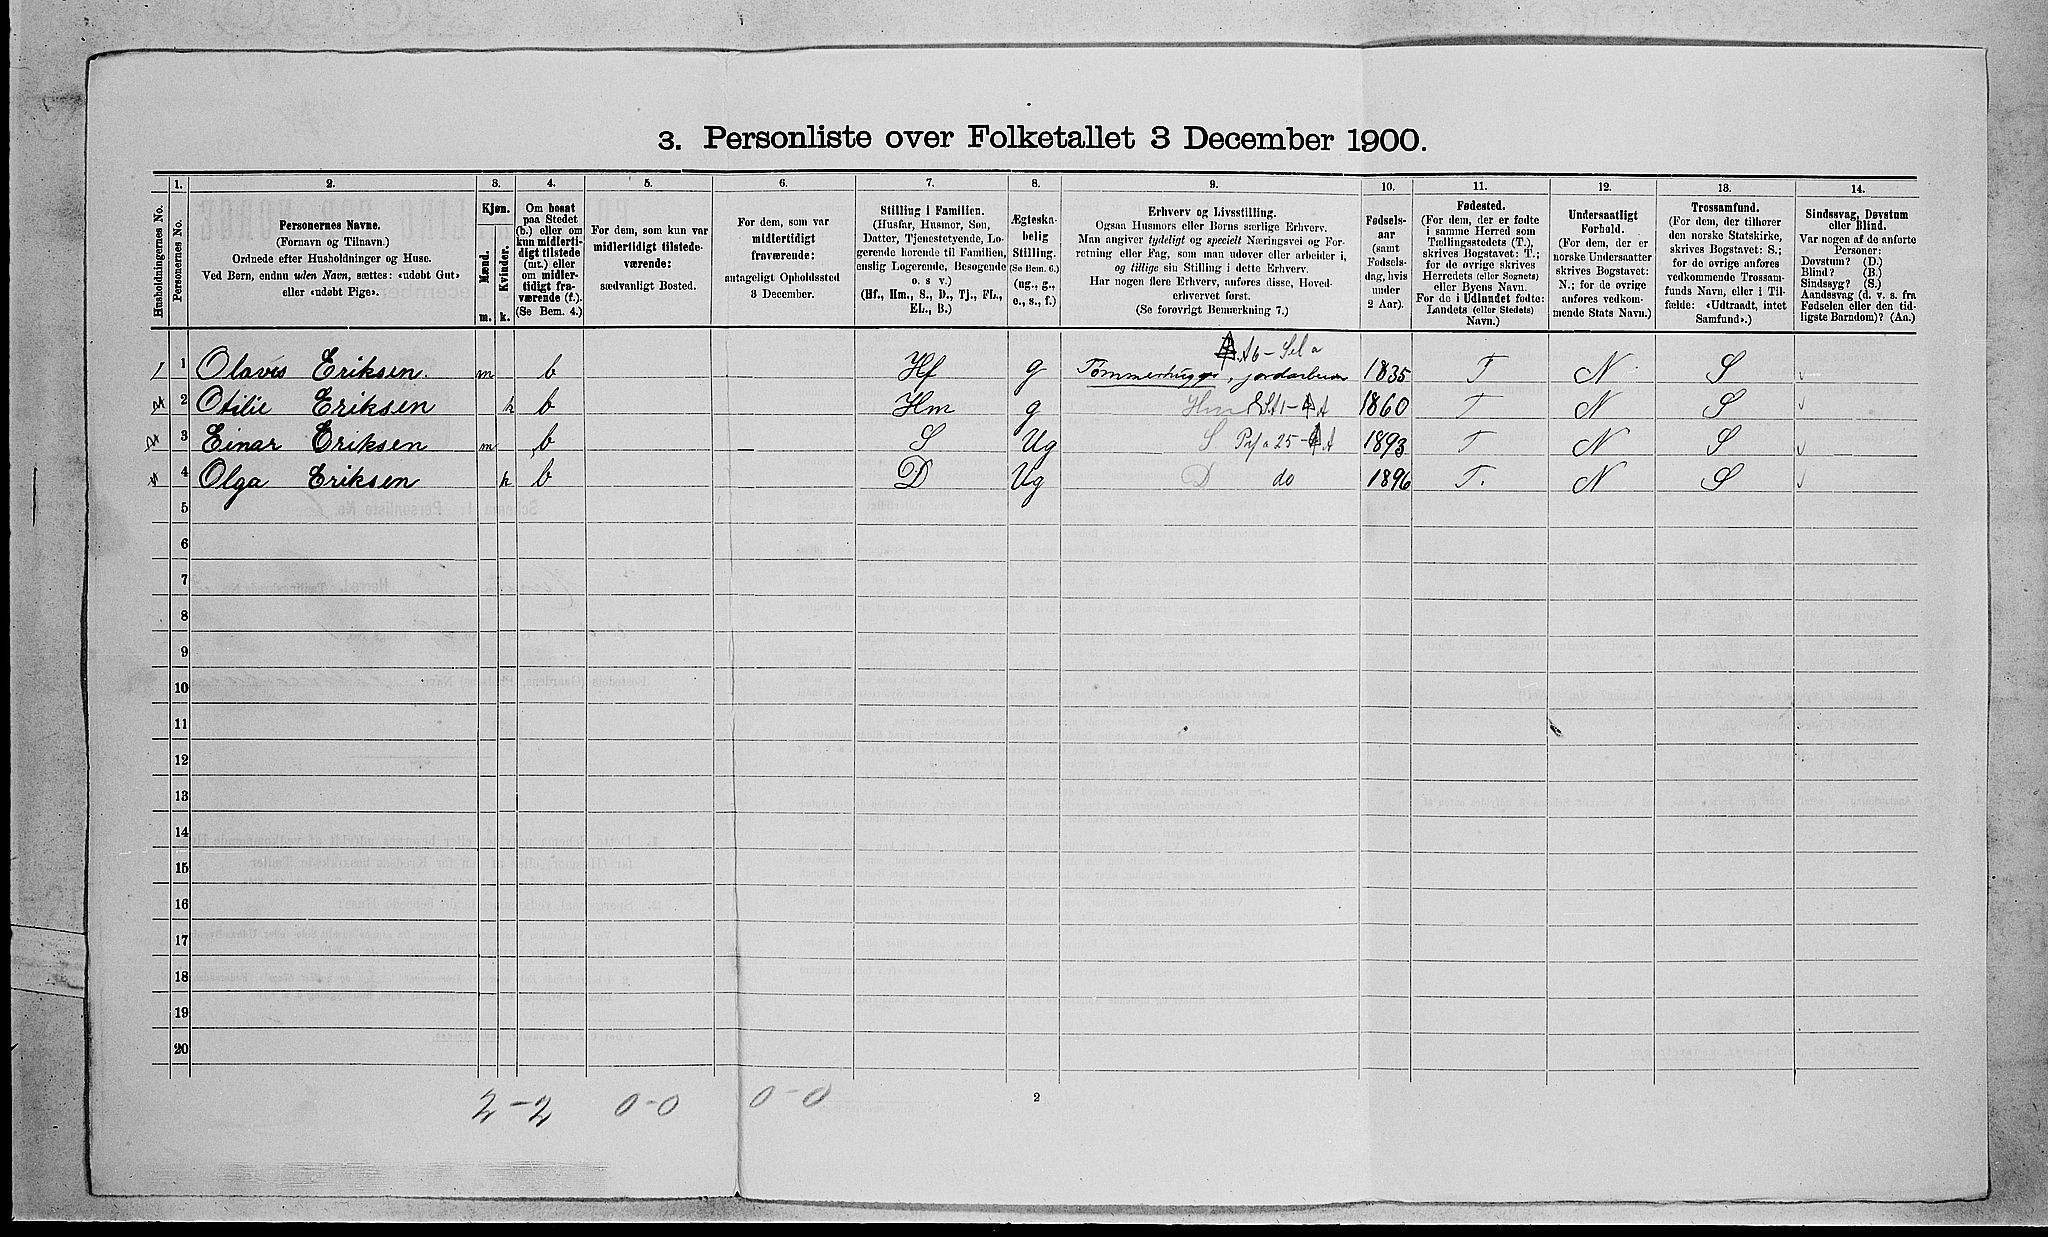 3. Personliste over Folketallet 3 December 1900.
Husholdningernes No.
1.
Personernes No.
2.
Personernes Navne.
(Fornavn og Tilnavn.)
Ordnede efter Husholdninger og Huse.
Ved Børn, endnu uden Navn, sættes: «udøbt Gut»
eller «udøbt Pige».
3.
Kjøn.
Mænd.
m.
Kvinder.
k.
4.
Om bosat
paa Stedet
(b.) eller om
kun midlerti-
digt tilstede
(mt.) eller
om midler-
tidigt fra-
værende (f.).
(Se Bem. 4.)
5.
For dem, som kun var
midlertidigt tilstede-
værende:
sædvanligt Bosted.
6.
For dem, som var
midlertidigt
fraværende:
antageligt Opholdssted
3 December.
7.
Stilling i Familien.
(Husfar, Husmor, Søn,
Datter, Tjenestetyende, Lo-
gerende hørende til Familien,
enslig Logerende, Besøgende
o. s v.)
(Hf., Hm., S., D., Tj., FL.,
EL., B.)
8.
Ægteska-
belig
Stilling.
(Se Bem. 6.)
(ug., g.,
e., s., f.)
9.
Erhverv og Livsstilling.
Ogsaa Husmors eller Børns særlige Erhverv.
Man angiver tydeligt og specielt Næringsvei og For-
retning eller Fag, som man udøver eller arbeider i,
og tillige sin Stilling i dette Erhverv.
Har nogen flere Erhverv, anføres disse, Hoved-
erhvervet først.
(Se forøvrigt Bemærkning 7.)
10.
Fødsels-
aar
(samt
Fødsels-
dag, hvis
under
2 Aar).
11.
Fødested.
(For dem, der er fødte
i samme Herred som
Tællingsstedets (T.),
skrives Bogstavet: T.;
for de øvrige skrives
Herredets (eller Sognets)
eller Byens Navn.
For de i Udlandet fødte:
Landets (eller Stedets)
Navn.)
12.
Undersaatligt
Forhold.
(For dem, der er
norske Undersaatter
skrives Bogstavet:
N.; for de øvrige
anføres vedkom-
mende Stats Navn.)
13.
Trossamfund.
(For dem, der tilhører
den norske Statskirke,
skrives Bogstavet: S.;
for de øvrige anføres
vedkommende Trossam-
funds Navn, eller i Til-
fælde: «Udtraadt, intet
Samfund».)
14.
Sindssvag, Døvstum
eller Blind.
Var nogen af de anførte
Personer:
Døvstum? (D.)
Blind? (B.)
Sindssyg? (S.)
Aandssvag (d. v. s. fra
Fødselen eller den tid-
ligste Barndom)? (Aa.)
A6 - Sela
1 Olaves Eriksen. m b Hf g Tømmerhugger, jordarbeider 1835 T N S
2 Otilie Eriksen k b Hm g Hm 1860 T N S
3 Einar Eriksen m b S Ug S 1893 T N S
4 Olga Eriksen k b D Ug D do 1896 T. N S
5
6
7
8
9
10
11
12
13
14
15
16
17
18
19
20
2 - 2 0 - 0 0 - 0
2